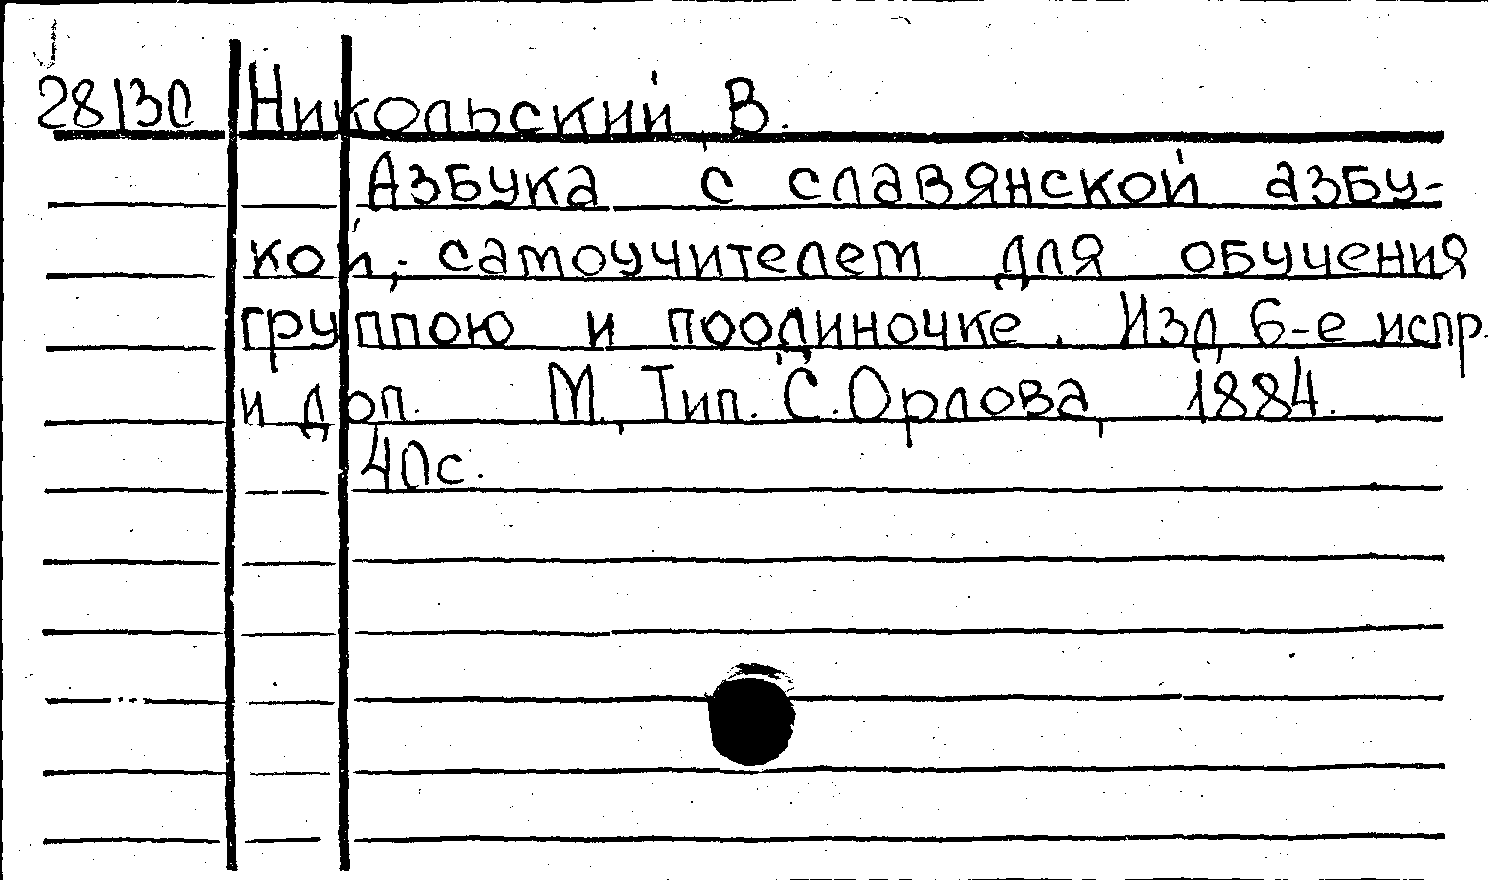 28130 Никольский В.
Азбука с славянской азбу-
кой, самоучителем для обучения
группою и поодиночке. Изд 6-е испр.
и доп. М, Тип. С. Орлова, 1884.
40с.